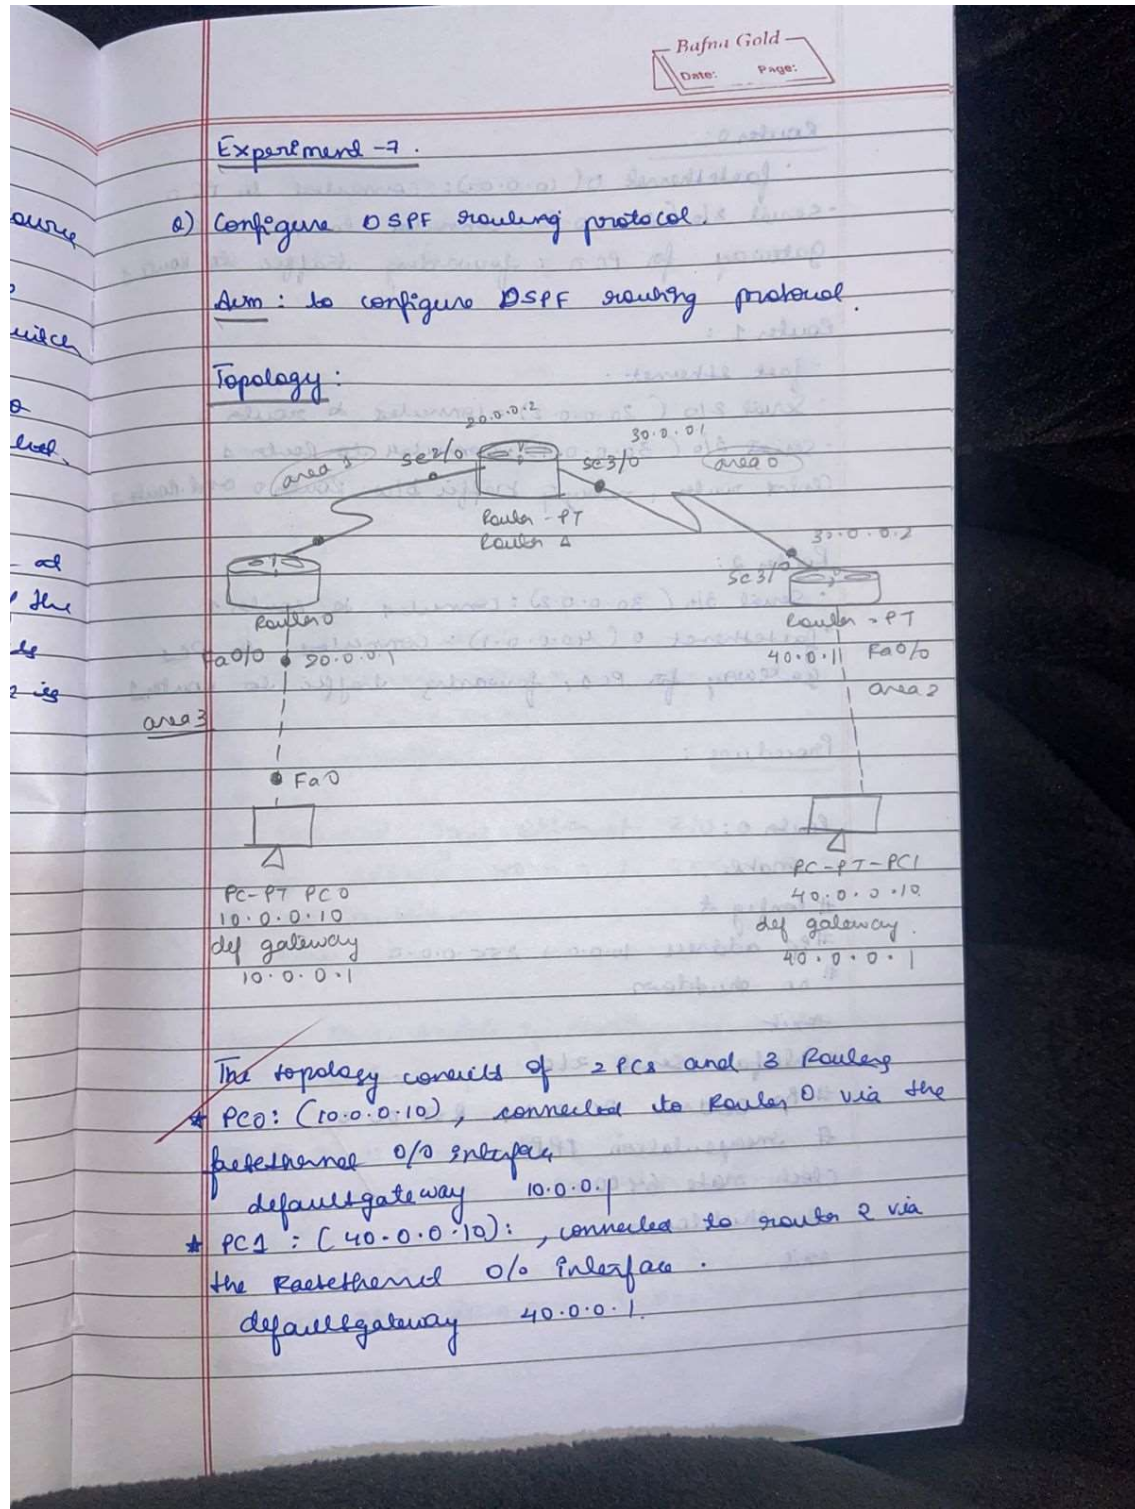 Bafna Gold
Date: Page:
Experiment -7.
Q) Configure OSPF routing protocol.
Aim : to configure OSPF routing protocol.
Topology :
20.0.0.2
30.0.0.1
se2/0
se3/0
area 0
Router - PT
30.0.0.2
se3/0
Router 0
Router - PT
Fa0/0 20.0.0.1
40.0.11 Fa0/0
area 2
area 3
Fa0
PC-PT PC0
10.0.0.10
def gateway
10.0.0.1
PC-PT-PC1
40.0.0.10
def gateway.
40.0.0.1
The topology consists of 2 PCs and 3 Routers
* PC0: (10.0.0.10), connected to Router 0 via the
fastethernet 0/0 interface
default gateway 10.0.0.1
* PC1 : (40.0.0.10):, connected to router 2 via
the Fastethernet 0/0 interface.
default gateway 40.0.0.1.
ource
witch
level.
at
the